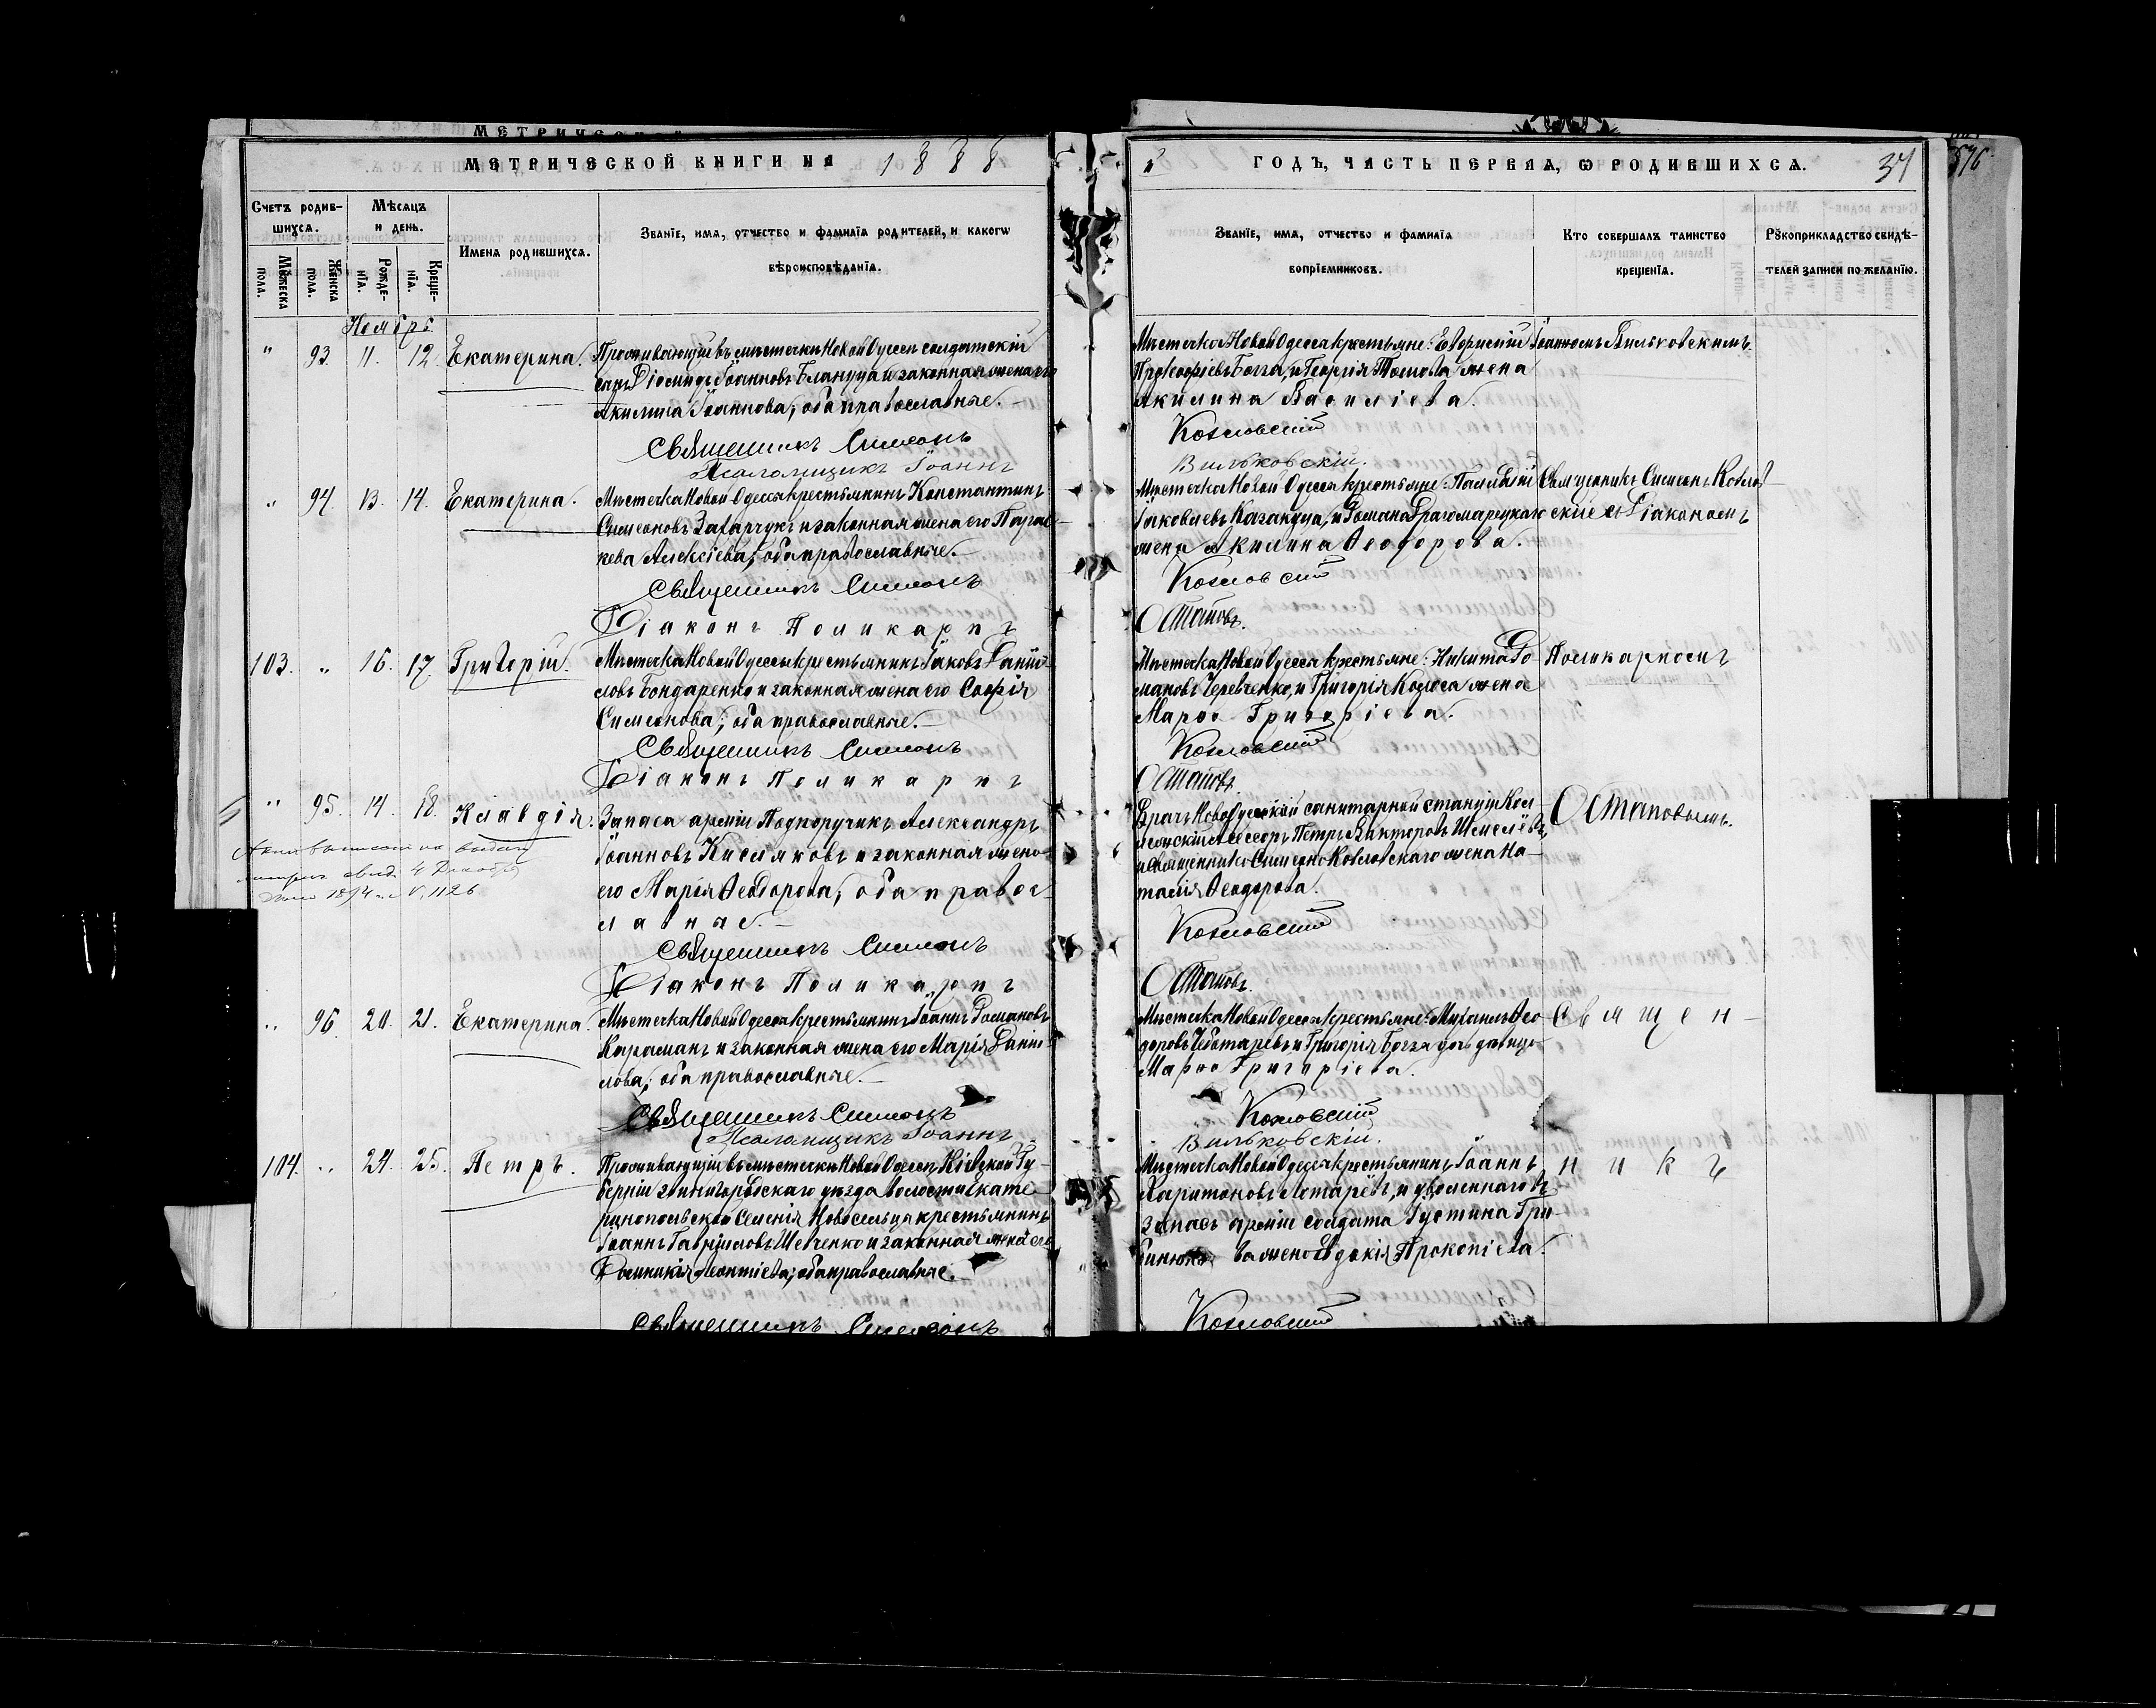 МЕТРИЧЕСКОЙ КНИГИ НА 1888
ГОДЪ, ЧАСТЬ ПЕРВАЯ, Ѡ РОДИВШИХСЯ.
37
576
Счетъ родившихся.
Мѣсяцъ и день.
Мужеска пола.
Женска пола.
Рожденія.
Крещенія.
Имена родившихся.
Званіе, имя, отчество и фамилія родителей, и какогѡ
вѣроисповѣданія.
Званіе, имя, отчество и фамилія
воспріемниковъ.
Кто совершалъ таинство
крещенія.
Рꙋкоприкладство свидѣ-
телей записи по желанію.
Ноябрь
" 93. 11. 12. Екатерина.
Проживающій въ мѣстечки Новой Одессѣ солдатскій
сынъ Діомидъ Іоанновъ Блануца и законная жена его
Акилина Іоаннова, оба православные.
Священникъ Симеонъ
Псаломщикъ Іоаннъ
Мѣстечка Новой Одессы крестьяне: Евфимій
Прокофіевъ Богза, и Георгія Томова жена
Акилина Василіева.
Козловскій
Вильковскій.
Іоанномъ Вильковскимъ
" 94. 13. 14. Екатерина.
Мѣстечка Новой Одессы крестьянинъ Константинъ
Симеоновъ Захарчукъ и законная жена его Парас-
кева Алексіева, оба православные.
Священникъ Симеонъ
Діаконъ Поликарпъ
Мѣстечка Новой Одессы крестьяне:
Іаковлевъ Казакуца, и Романа Драгомарецкаго
жена Акилина Ѳеодорова.
Козловскій
Остаповъ.
Священникъ Симеонъ Козлов-
скій съ Діакономъ
103. " 16. 17. Григорій.
Мѣстечка Новой Одессы крестьянинъ Іаковъ Даніи-
ловъ Бондаренко и законная жена его Софія
Симеонова, оба православные.
Священникъ Симеонъ
Діаконъ Поликарпъ
Мѣстечка Новой Одессы крестьяне: Никита Ро-
мановъ Черевченко, и Григорія Колоса жена
Марѳа Григоріева.
Козловскій
Остаповъ.
Поликарпомъ
" 95. 14. 18. Клавдія.
Запаса арміи Подпоручикъ Александръ
Іоанновъ Кисляковъ и законная жена
его Марія Ѳеодорова, оба правос-
лавные.
Священникъ Симеонъ
Діаконъ Поликарпъ
Врачъ Новоодесской санитарной станціи Кол-
лежскій Ассесоръ Петръ Викторовъ Шмелёвъ,
и священника Симеона Козловскаго жена На-
талія Ѳеодорова.
Козловскій
Остаповъ.
Остаповымъ.
4 Декабря
1894 г. № 1126
" 96. 20. 21. Екатерина.
Мѣстечка Новой Одессы крестьянинъ Іоаннъ Романовъ
Караманъ и законная жена его Марія Даніи-
лова, оба православные.
Священникъ Симеонъ
Псаломщикъ Іоаннъ
Мѣстечка Новой Одессы крестьяне: Михаилъ Ѳео-
доровъ Чеботаревъ и Григорія Богза дочь девица
Марѳа Григоріева.
Козловскій
Вильковскій.
Священ-
104. " 24. 25. Петръ.
Проживающій въ мѣстечки Новой Одессѣ Кіевской Гу-
берніи Звинигородскаго уезда волости Екате-
ринопольской Селенія Новоселица крестьянинъ
Іоаннъ Гавріиловъ Шевченко и законная жена его
Домникія Леонтіева, оба православные.
Священникъ Симеонъ
Мѣстечка Новой Одессы крестьянинъ Іоаннъ
Харитоновъ Лотарёвъ, и уволеннаго въ
запасъ арміи солдата Густина Гри-
жена Евдокія Прокопіева.
Козловскій
никъ